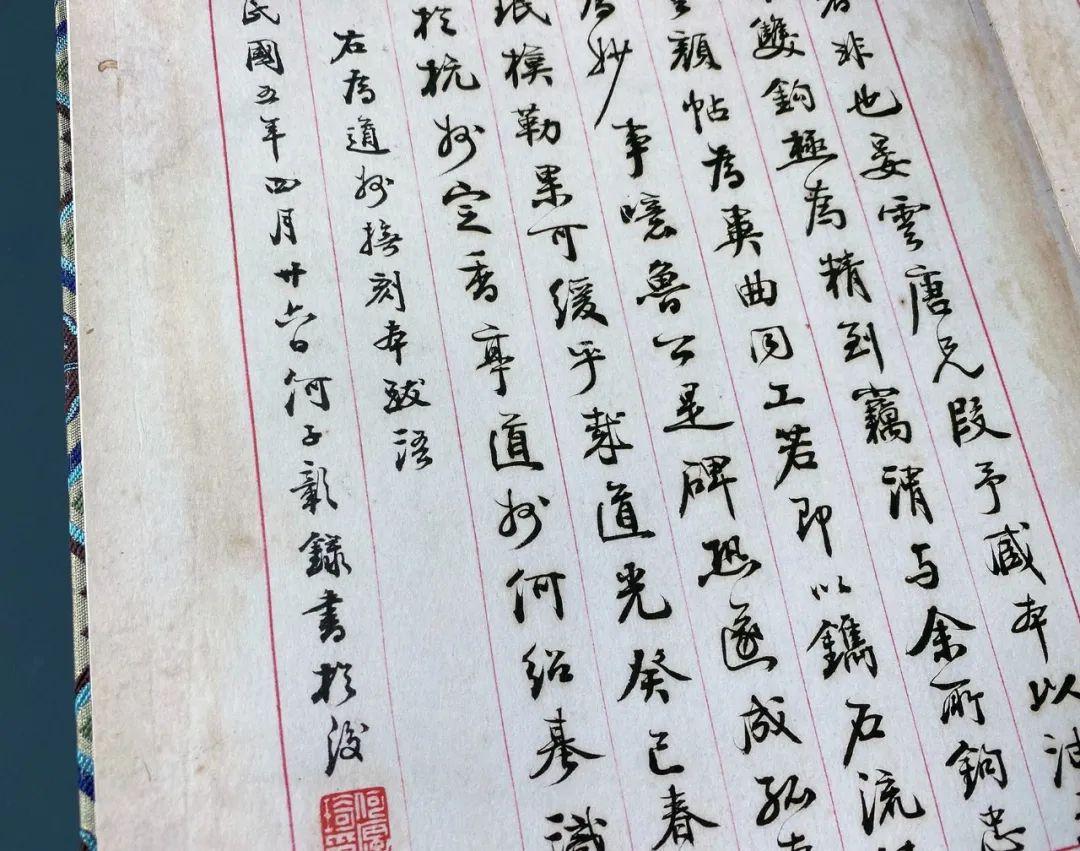 非也晏雲唐兄段予臧本以油
雙鉤極為精到竊謂与余所鉤忠
顏帖為異曲同工若即以鐫石流
為妙事噫魯公是碑恐遂成孤本
珉模勒果可緩乎哉道光癸巳春
於杭州定香亭道州何紹基識
右為道州撫刻本跋語
民國五年四月廿六日何子彰錄書於後